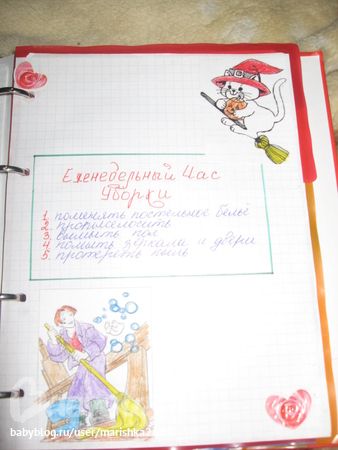 Еженедельный Час
Уборки
1. поменять постельное бельё
2. пропылесосить
3. вымыть пол
4. помыть зеркала и двери
5. протереть пыль
babyblog.ru/user/marishka2